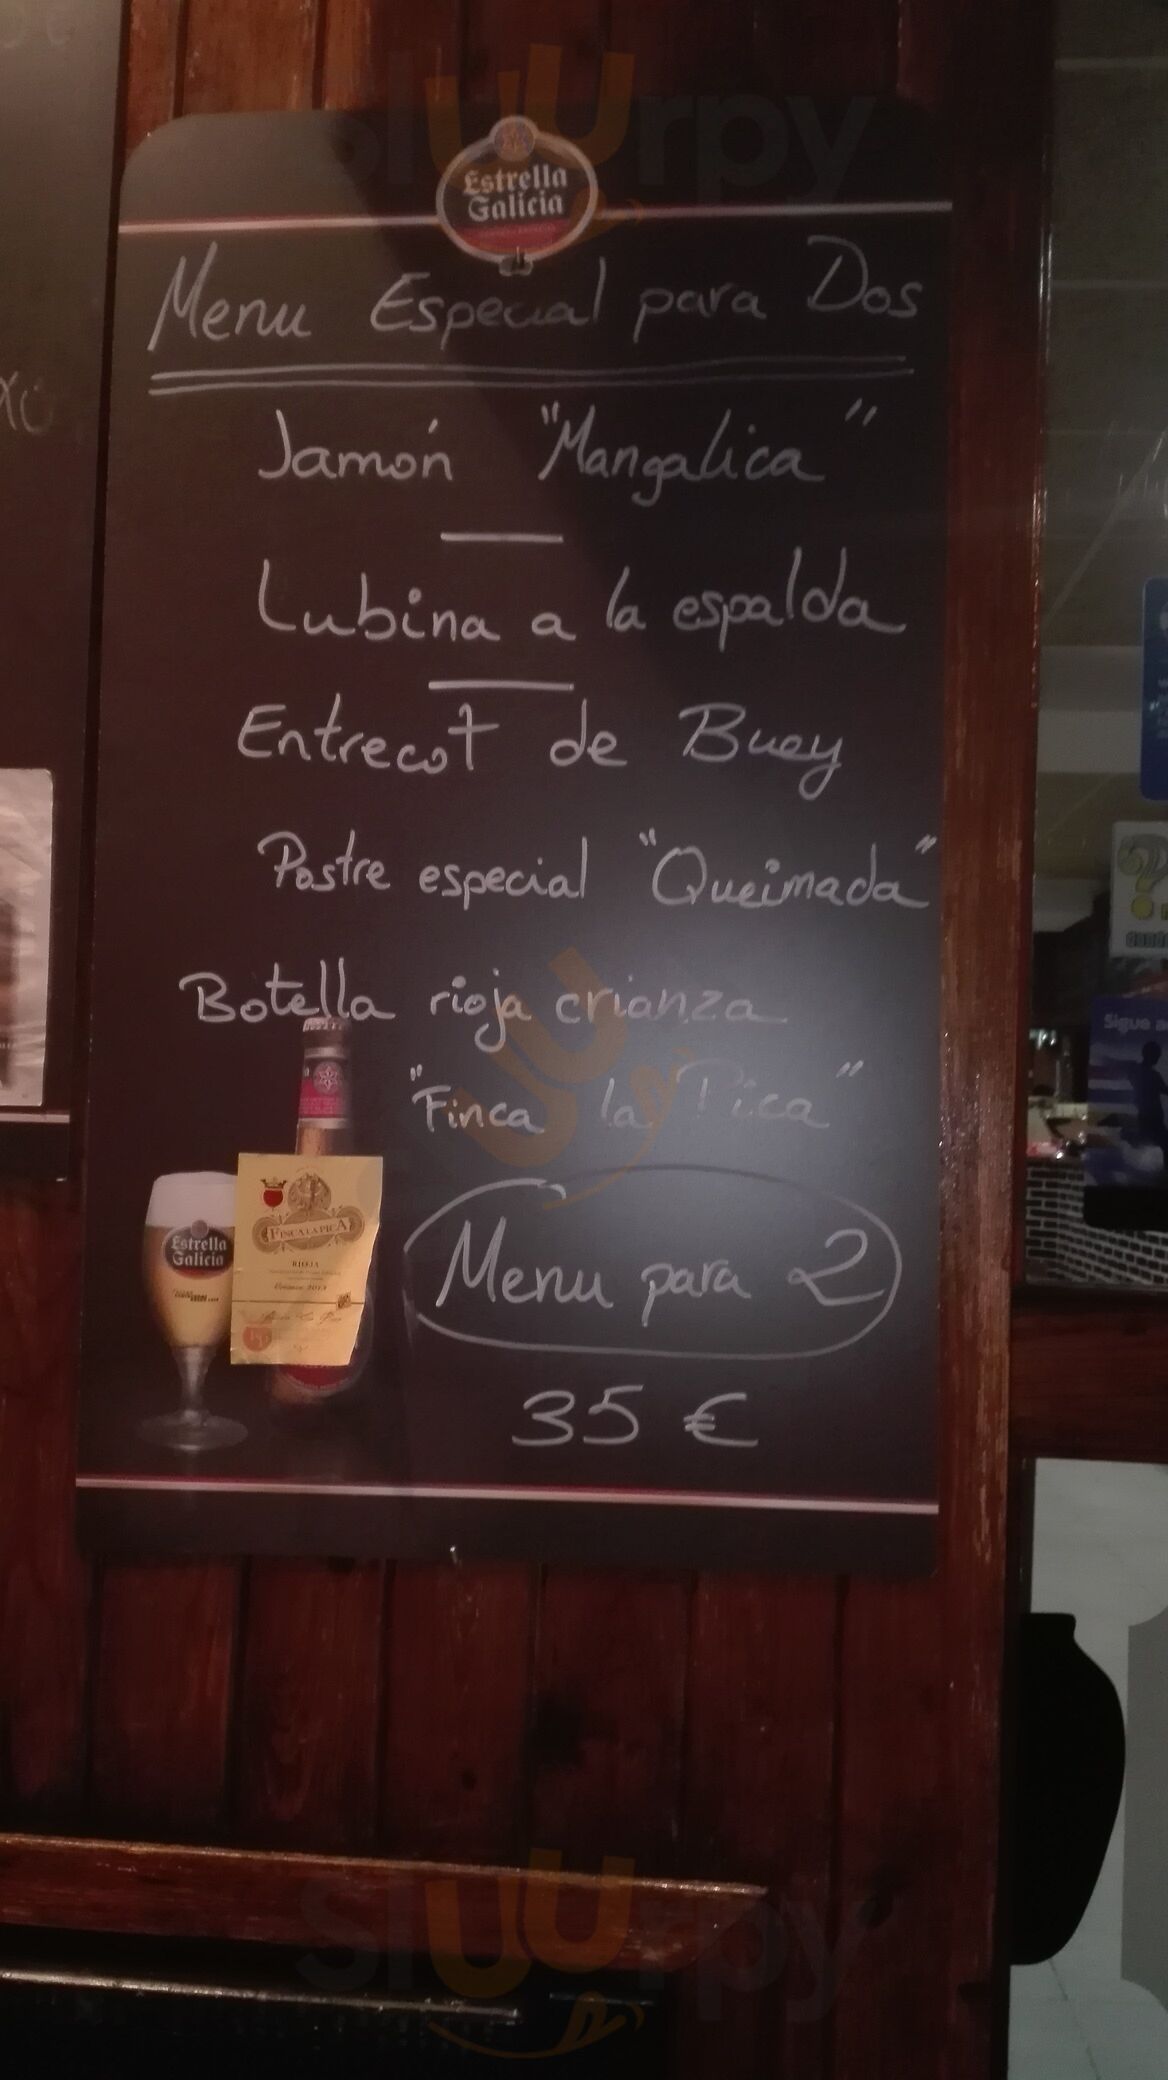 Estrella
Galicia
Menu Especial para Dos
Jamón "Mangalica"
Lubina a la espalda
Entrecot de Buey
Postre especial "Queimada"
Botella rioja crianza
"Finca la Pica"
Estrella
Galicia
FINCA LA PICA
RIOJA
Crianza 2013
Menu para 2
35 €
Sigue a
sluurpy
sluurpy